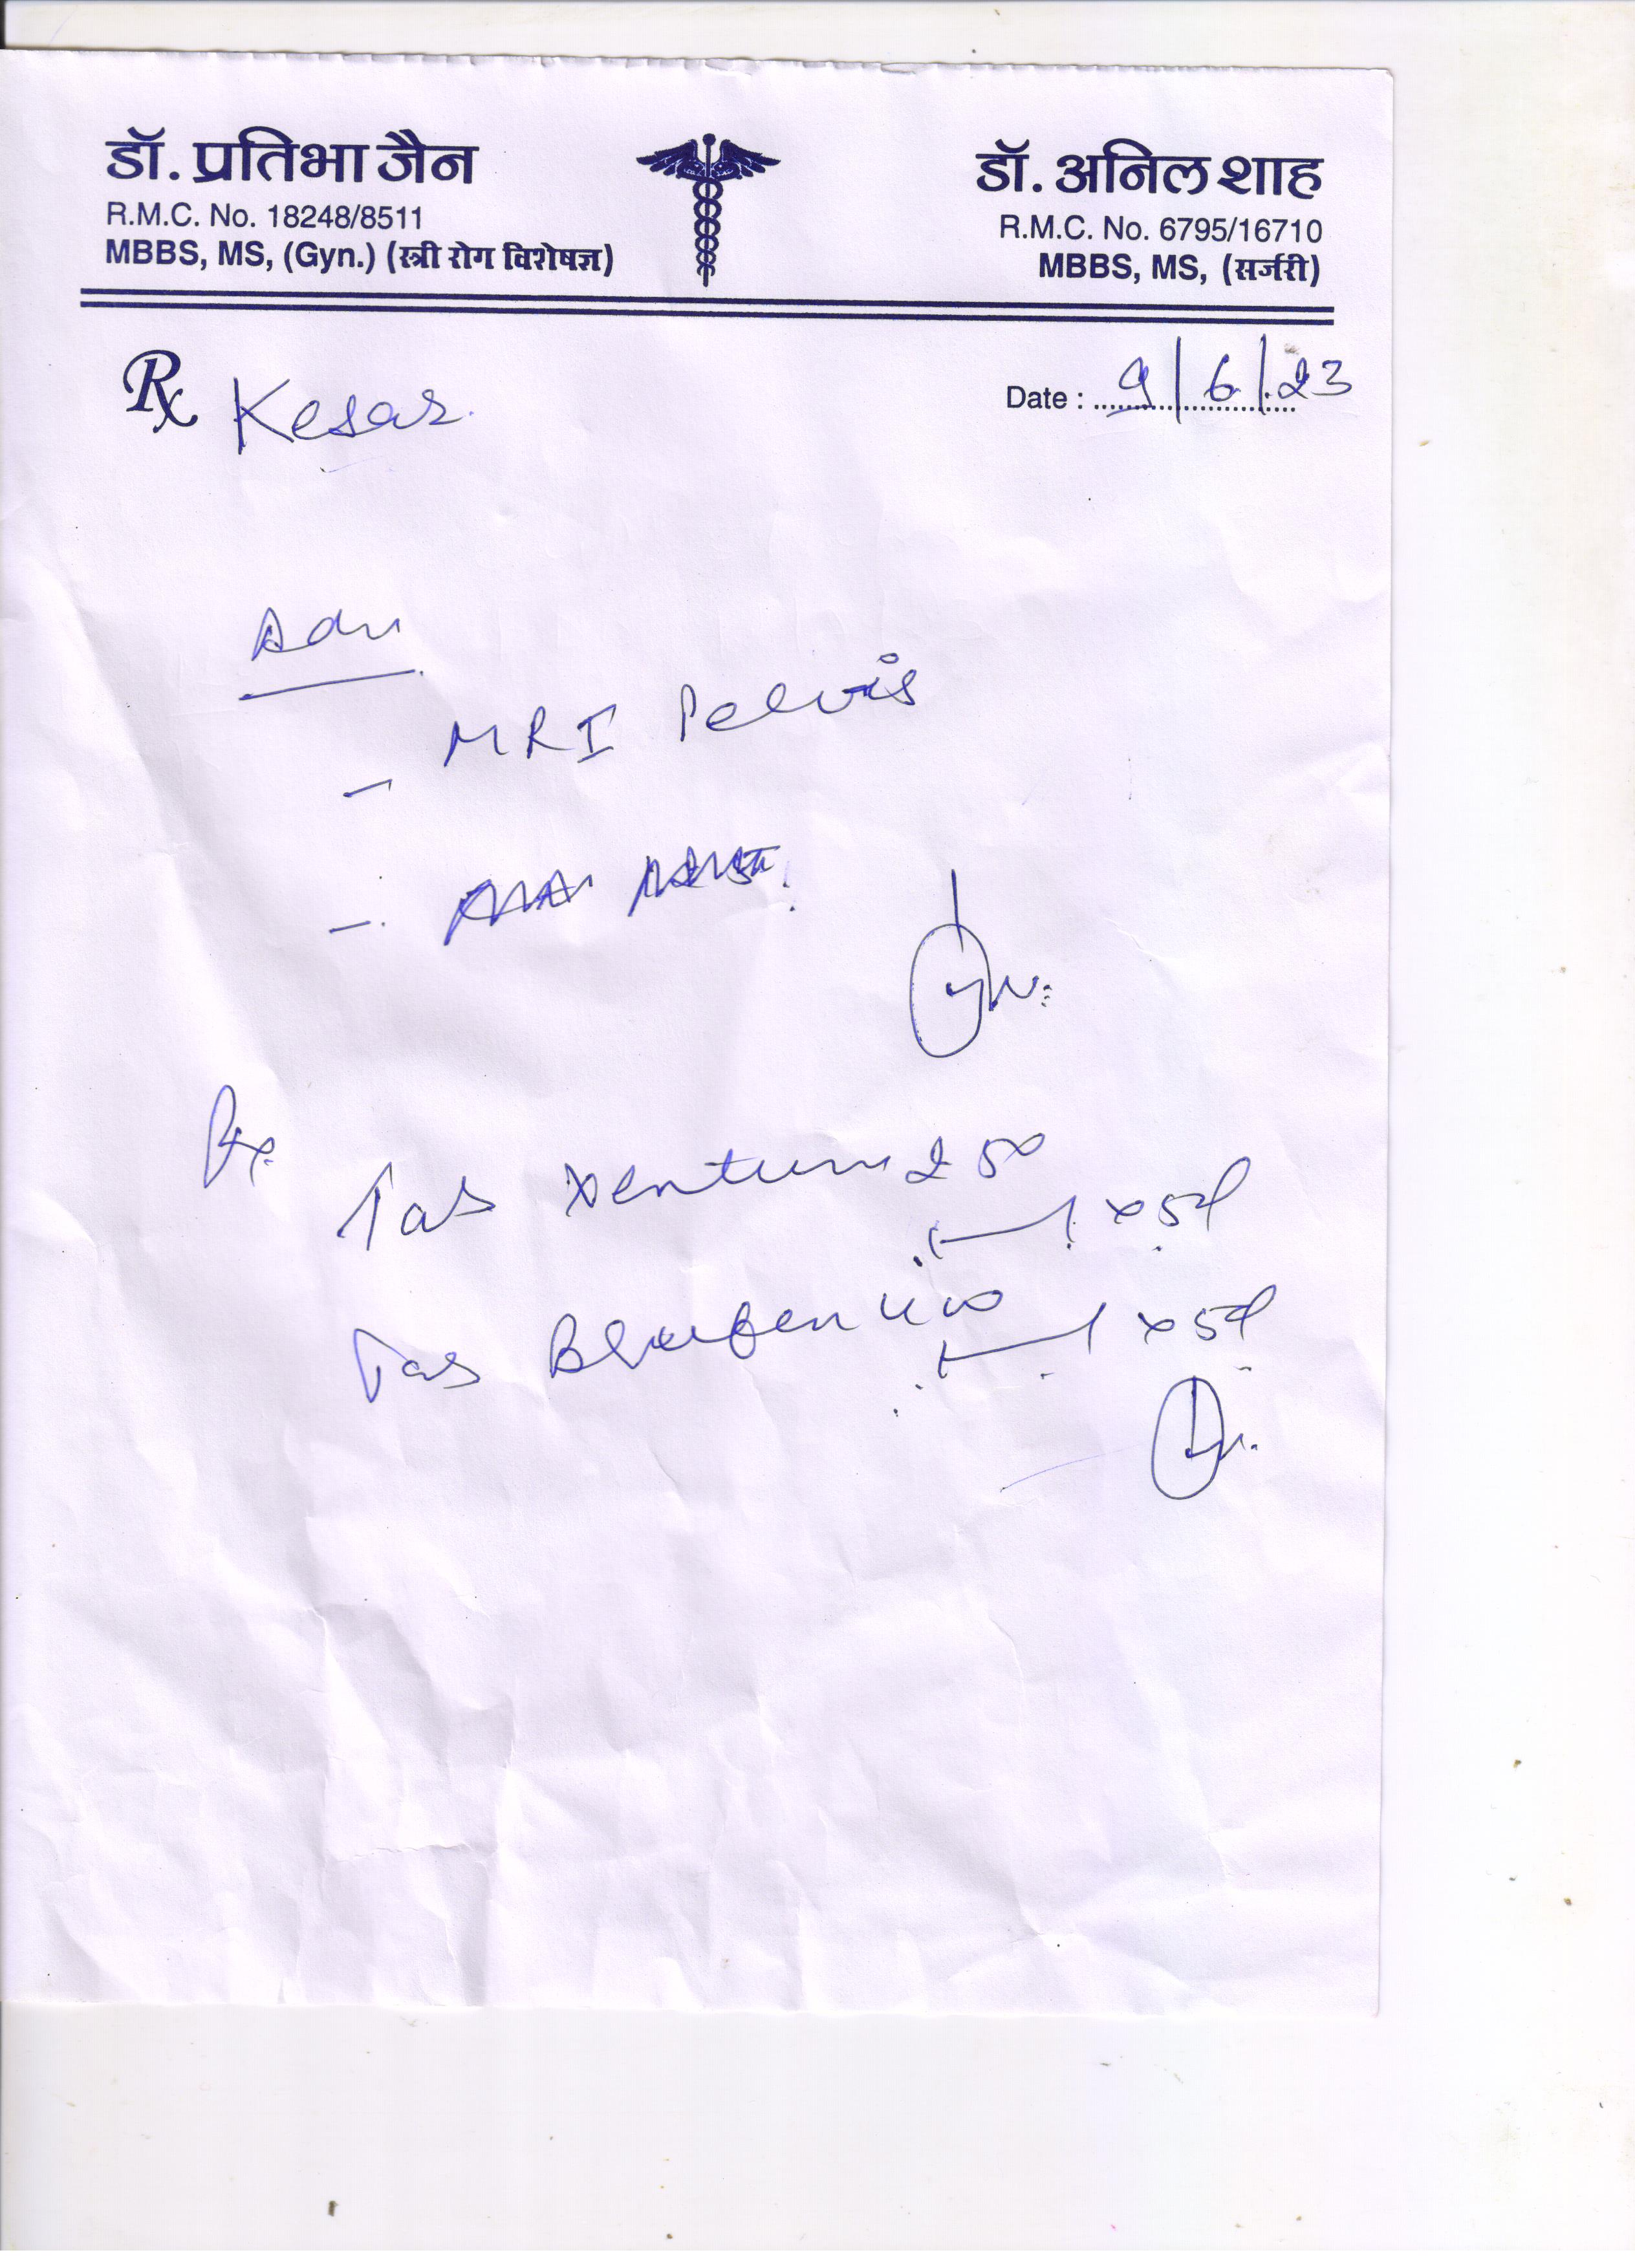 डॉ. प्रतिभा जैन
R.M.C. No. 18248/8511
MBBS, MS, (Gyn.) (स्त्री रोग विशेषज्ञ)
डॉ. अनिल शाह
R.M.C. No. 6795/16710
MBBS, MS, (सर्जरी)
Rx Kesar.
Date : 9/6/23
Adv
- MRI Pelvis
-
Rx
Tab Xentum 250
1—1 x 5d
Tab 400
1—1 x 5d